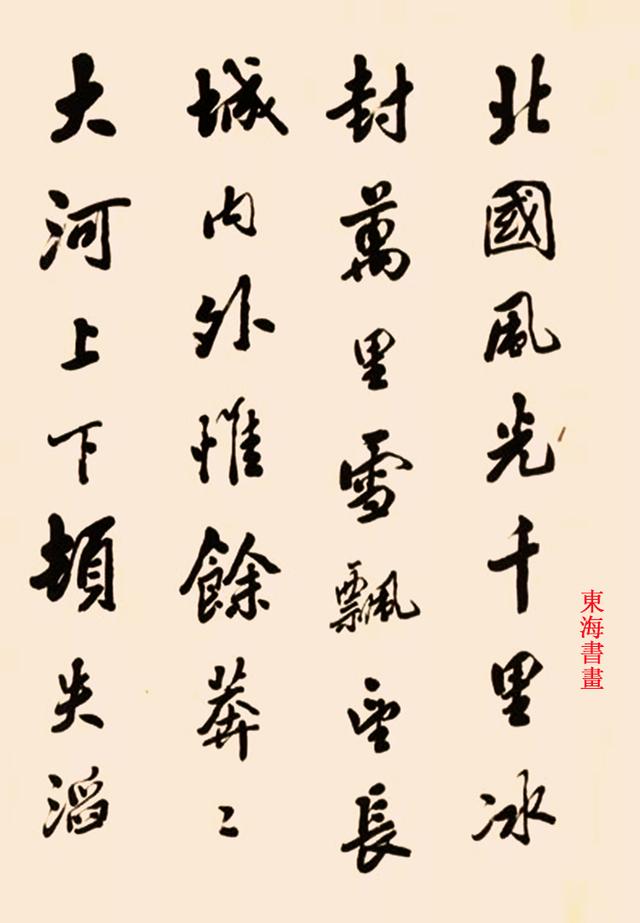 北國風光千里冰
封萬里雪飄望長
城內外惟餘莽〻
大河上下頓失滔
東海書畫